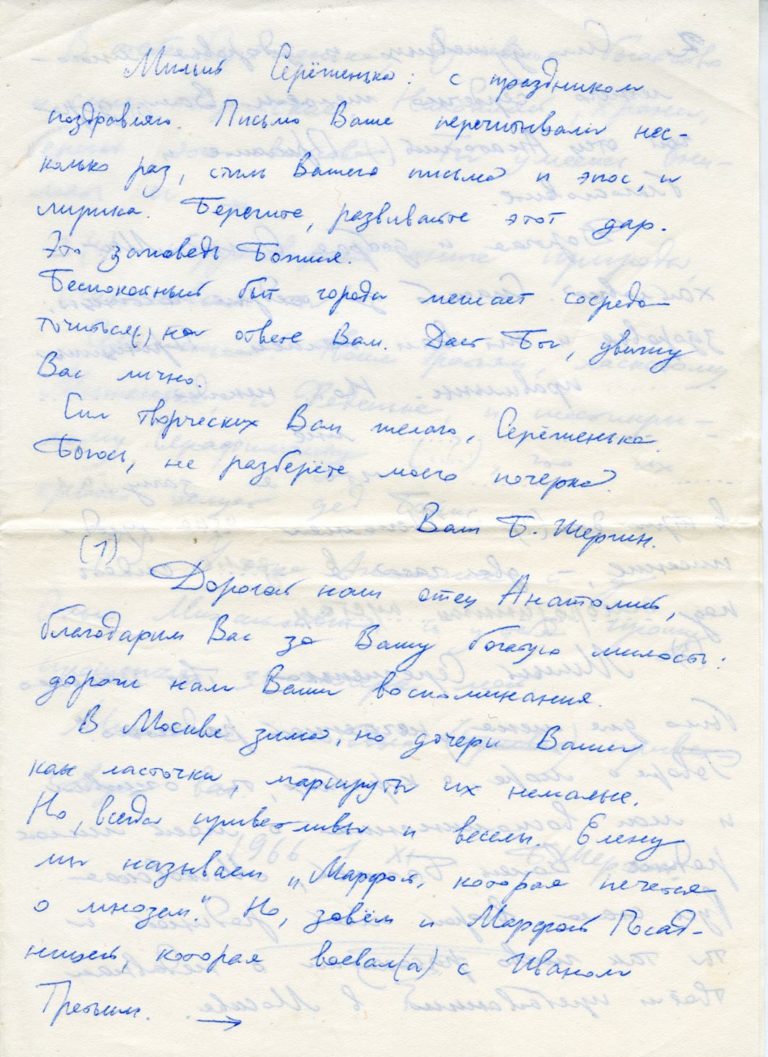 Милый Серёженька: с праздником
поздравляю. Письмо Ваше перечитывали нес-
колько раз, стиль Вашего письма и эпос, и
лирика. Берегите, развивайте этот дар.
Это заповедь Божия.
Беспокойный быт города мешает сосредо-
точиться(,) на ответе Вам. Даст Бог, увижу
Вас лично.
Сил творческих Вам желаю, Серёженька.
Боюсь, не разберёте моего почерка.
Ваш Б. Шергин.
(1)
Дорогой наш отец Анатолий,
благодарим Вас за Вашу богатую милость:
дороги нам Ваши воспоминания.
В Москве зима, но дочери Ваши
как ласточки, маршруты их немалые.
Но, всегда приветливы и веселы. Елену
мы называем „Марфой, которая печется
о мнозем." Но, зовём и Марфой Посад-
ницей, которая воевал(а) с Иваном
Третьим. →